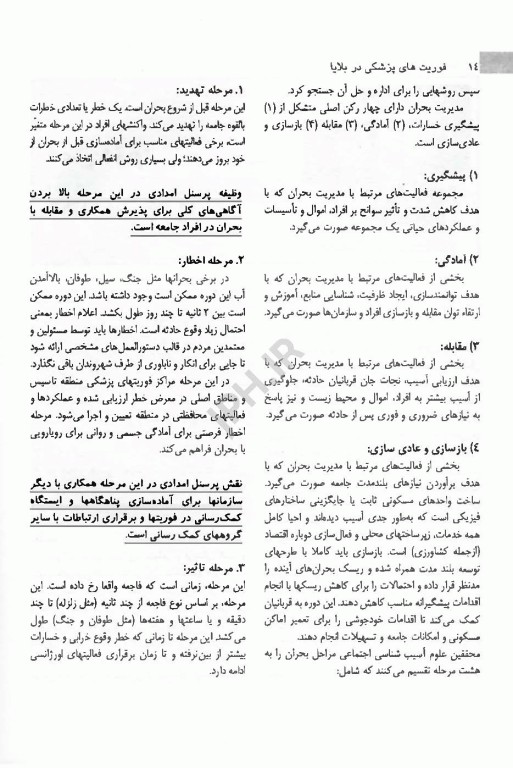 ۱۴ فوریت های پزشکی در بلایا
سپس روشهایی را برای اداره و حل آن جستجو کرد.
مدیریت بحران دارای چهار رکن اصلی متشکل از (۱)
پیشگیری خسارات، (۲) آمادگی، (۳) مقابله (۴) بازسازی و
عادی‌سازی است.
۱) پیشگیری:
مجموعه فعالیت‌های مرتبط با مدیریت بحران که با
هدف کاهش شدت و تأثیر سوانح بر افراد، اموال و تأسیسات
و عملکردهای حیاتی یک مجموعه صورت می‌گیرد.
۲) آمادگی:
بخشی از فعالیت‌های مرتبط با مدیریت بحران که با
هدف توانمندسازی، ایجاد ظرفیت، شناسایی منابع، آموزش و
ارتقاء توان مقابله و بازسازی افراد و سازمان‌ها صورت می‌گیرد.
۳) مقابله:
بخشی از فعالیت‌های مرتبط با مدیریت بحران که با
هدف ارزیابی آسیب، نجات جان قربانیان حادثه، جلوگیری
از آسیب بیشتر به افراد، اموال و محیط زیست و نیز پاسخ
به نیازهای ضروری و فوری پس از حادثه صورت می‌گیرد.
۴) بازسازی و عادی سازی:
بخشی از فعالیت‌های مرتبط با مدیریت بحران که با
هدف برآوردن نیازهای بلندمدت جامعه صورت می‌گیرد.
ساخت واحدهای مسکونی ثابت یا جایگزینی ساختارهای
فیزیکی است که به‌طور جدی آسیب دیده‌اند و احیا کامل
همه خدمات، زیرساختهای محلی و فعال‌سازی دوباره اقتصاد
(ازجمله کشاورزی) است. بازسازی باید کاملا با طرحهای
توسعه بلند مدت همراه شده و ریسک بحران‌های آینده را
مدنظر قرار داده و احتمالات را برای کاهش ریسکها با انجام
اقدامات پیشگیرانه مناسب کاهش دهند. این دوره به قربانیان
کمک می‌کند تا اقدامات خودجوشی را برای تعمیر اماکن
مسکونی و امکانات جامعه و تسهیلات انجام دهند.
محققین علوم آسیب شناسی اجتماعی مراحل بحران را به
هشت مرحله تقسیم می‌کنند که شامل:
۱. مرحله تهدید:
این مرحله قبل از شروع بحران است. یک خطر یا تعدادی خطرات
بالقوه جامعه را تهدید می‌کند. واکنشهای افراد در این مرحله متغیّر
است، برخی فعالیتهای مناسب برای آماده‌سازی قبل از بحران از
خود بروز می‌دهند؛ ولی بسیاری روش انفعالی اتخاذ می‌کنند.
وظیفه پرسنل امدادی در این مرحله بالا بردن
آگاهی‌های کلی برای پذیرش همکاری و مقابله با
بحران در افراد جامعه است.
۲. مرحله اخطار:
در برخی بحرانها مثل جنگ، سیل، طوفان، بالاآمدن
آب این دوره ممکن است وجود داشته باشد. این دوره ممکن
است بین ۲ ثانیه تا چند روز طول بکشد. اعلام اخطار بمعنی
احتمال زیاد وقوع حادثه است. اخطارها باید توسط مسئولین و
معتمدین مردم در قالب دستورالعمل‌های مشخصی ارائه شود
تا جایی برای انکار و ناباوری از طرف شهروندان باقی نگذارد.
در این مرحله مراکز فوریتهای پزشکی منطقه تاسیس
و مناطق اصلی در معرض خطر ارزیابی شده و عملکردها و
فعالیتهای محافظتی در منطقه تعیین و اجرا می‌شود. مرحله
اخطار فرصتی برای آمادگی جسمی و روانی برای رویارویی
با بحران فراهم می‌کند.
نقش پرسنل امدادی در این مرحله همکاری با دیگر
سازمانها برای آماده‌سازی پناهگاهها و ایستگاه
کمک‌رسانی در فوریتها و برقراری ارتباطات با سایر
گروههای کمک رسانی است.
۳. مرحله تاثیر:
این مرحله، زمانی است که فاجعه واقعا رخ داده است. این
مرحله، بر اساس نوع فاجعه از چند ثانیه (مثل زلزله) تا چند
دقیقه و یا ساعتها و هفته‌ها (مثل طوفان و جنگ) طول
می‌کشد. این مرحله تا زمانی که خطر وقوع خرابی و خسارات
بیشتر از بین‌نرفته و تا زمان برقراری فعالیتهای اورژانسی
ادامه دارد.